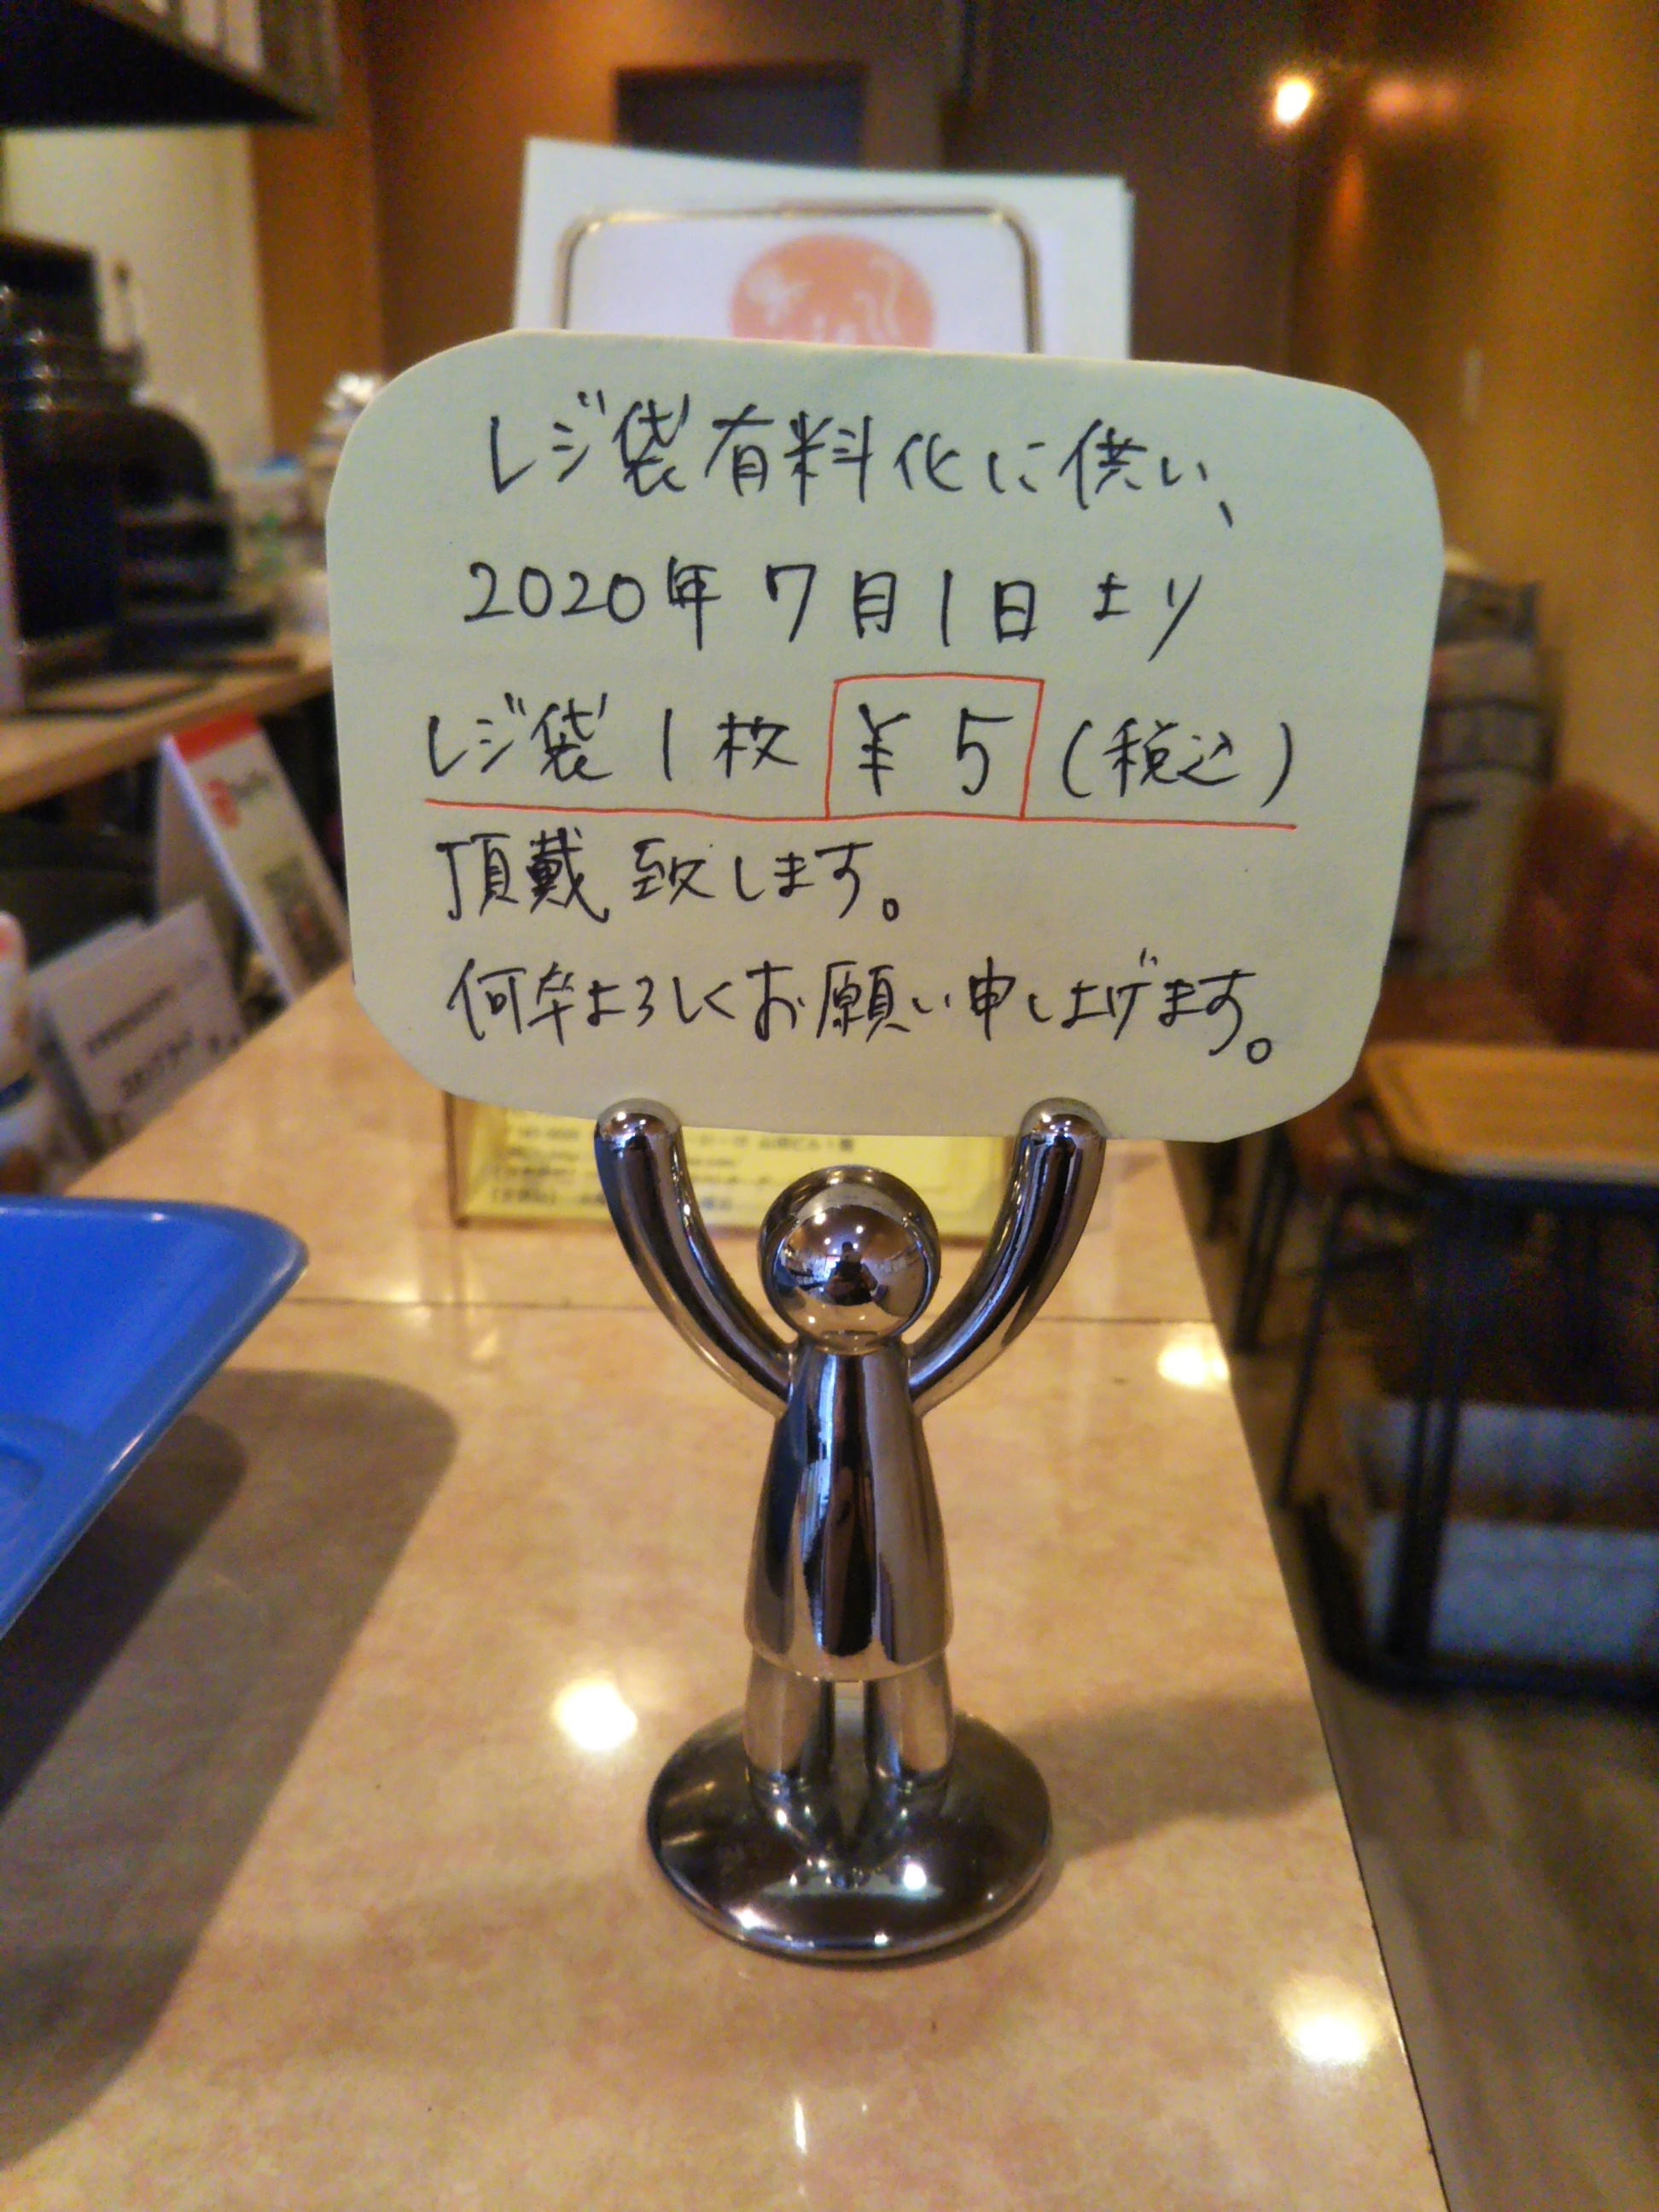 レジ袋有料化に供い、
2020年7月1日より
レジ袋1枚 ¥5 (税込)
頂戴致します。
何卒よろしくお願い申し上げます。